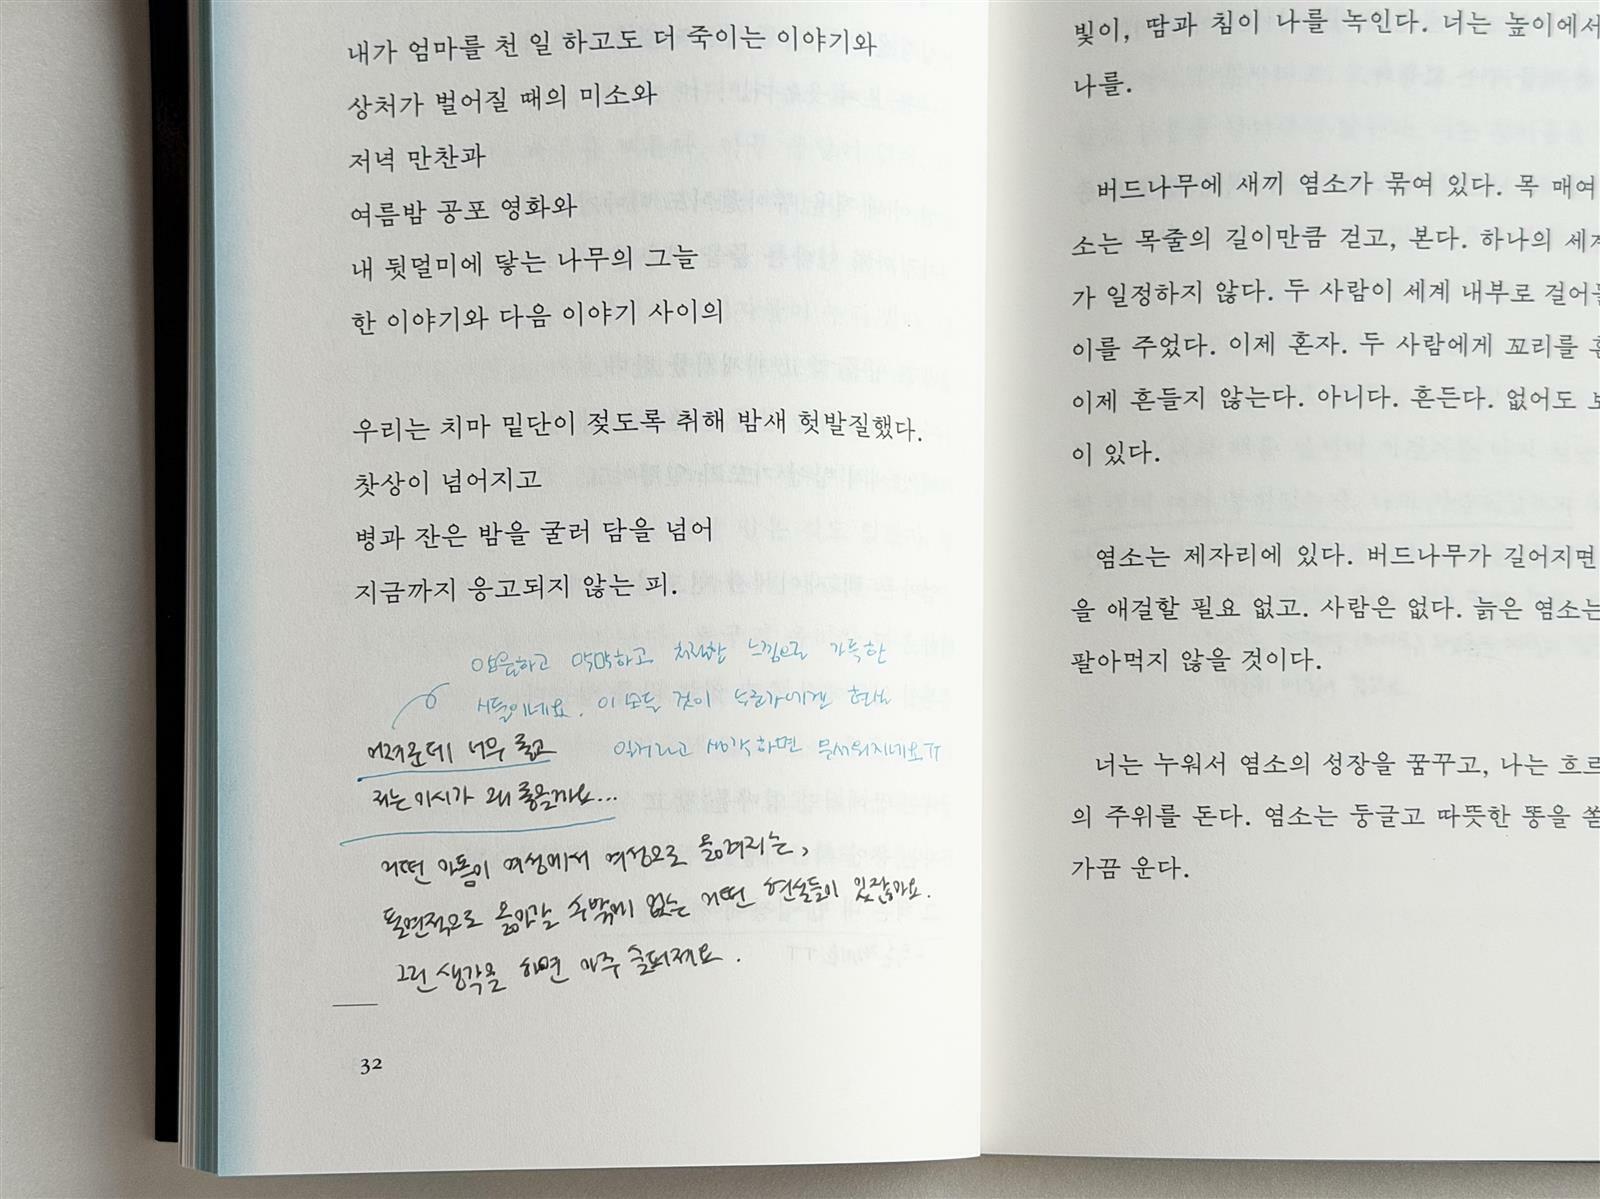 내가 엄마를 천 일 하고도 더 죽이는 이야기와
상처가 벌어질 때의 미소와
저녁 만찬과
여름밤 공포 영화와
내 뒷덜미에 닿는 나무의 그늘
한 이야기와 다음 이야기 사이의
우리는 치마 밑단이 젖도록 취해 밤새 헛발질했다.
찻상이 넘어지고
병과 잔은 밤을 굴러 담을 넘어
지금까지 응고되지 않는 피.
암울하고 막막하고 처절한 느낌으로 가득한
시들이네요. 이 모든 것이 누군가에겐 현실
일거라고 생각하면 무서워지네요ㅠ
어려운데 너무 좋고
저는 이 시가 왜 좋을까요...
어떤 아픔이 여성에서 여성으로 옮겨지는,
필연적으로 옮아갈 수밖에 없는 어떤 현실들이 있잖아요.
그런 생각을 하면 아주 슬퍼져요.
32
빛이, 땀과 침이 나를 녹인다. 너는 높이에서
나를.
버드나무에 새끼 염소가 묶여 있다. 목 매여
소는 목줄의 길이만큼 걷고, 본다. 하나의
가 일정하지 않다. 두 사람이 세계 내부로
이를 주었다. 이제 혼자. 두 사람에게 꼬리를
이제 흔들지 않는다. 아니다. 흔든다. 없어도
이 있다.
염소는 제자리에 있다. 버드나무가 길어지면
을 애걸할 필요 없고. 사람은 없다. 늙은 염소는
팔아먹지 않을 것이다.
너는 누워서 염소의 성장을 꿈꾸고, 나는
의 주위를 돈다. 염소는 둥글고 따뜻한 똥을
가끔 운다.